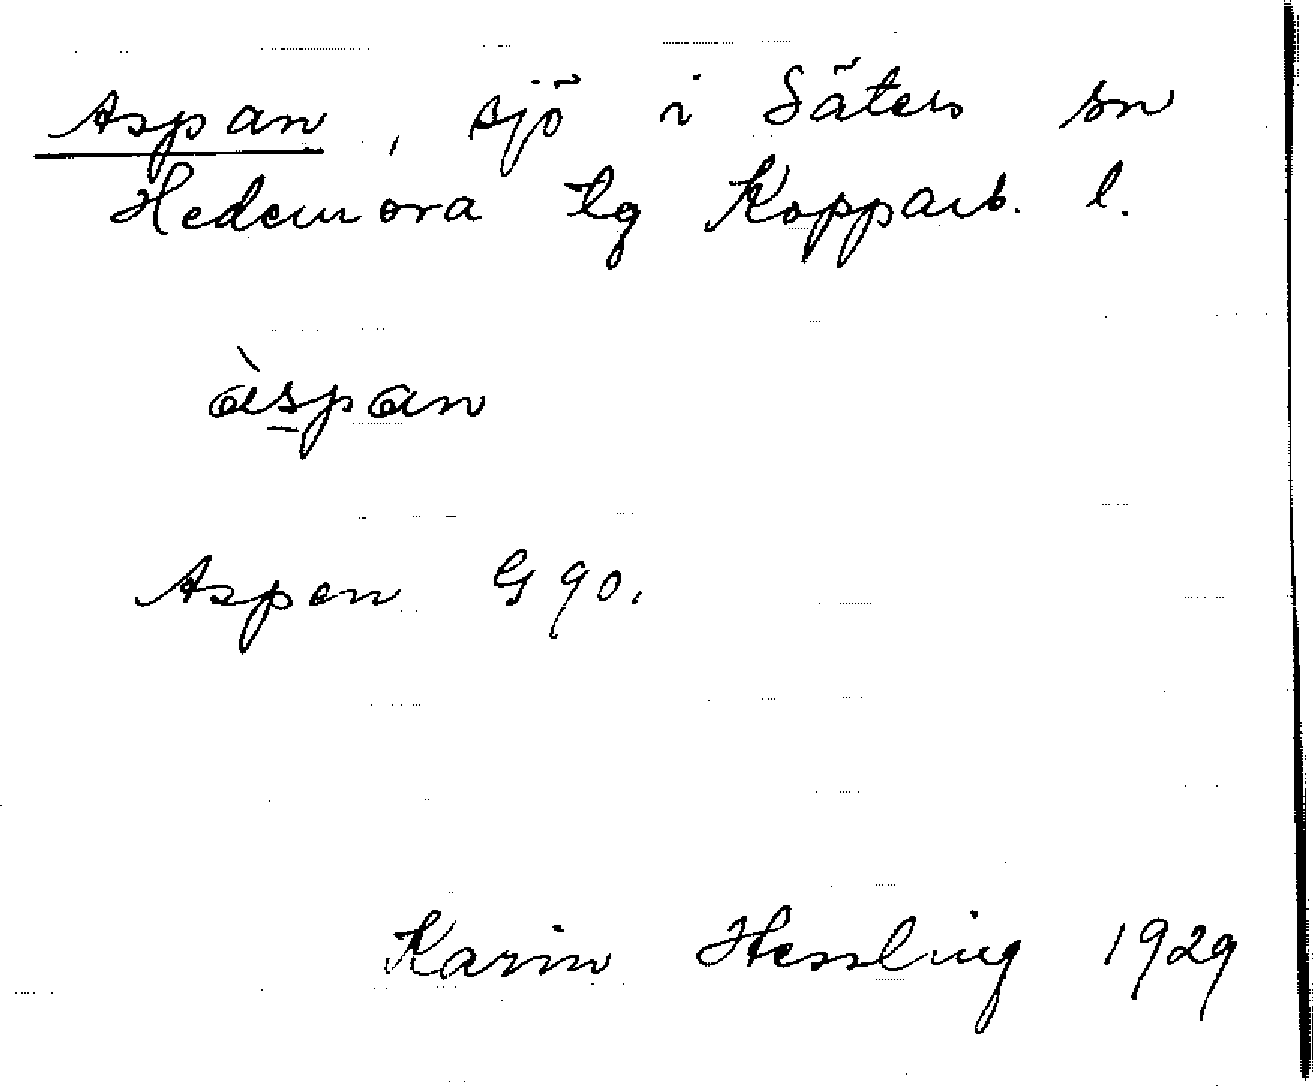 Aspan, sjö i Säters sn
Hedemora tg Kopparb. l.
àspan
Aspen G 90.
Karin Hessling 1929